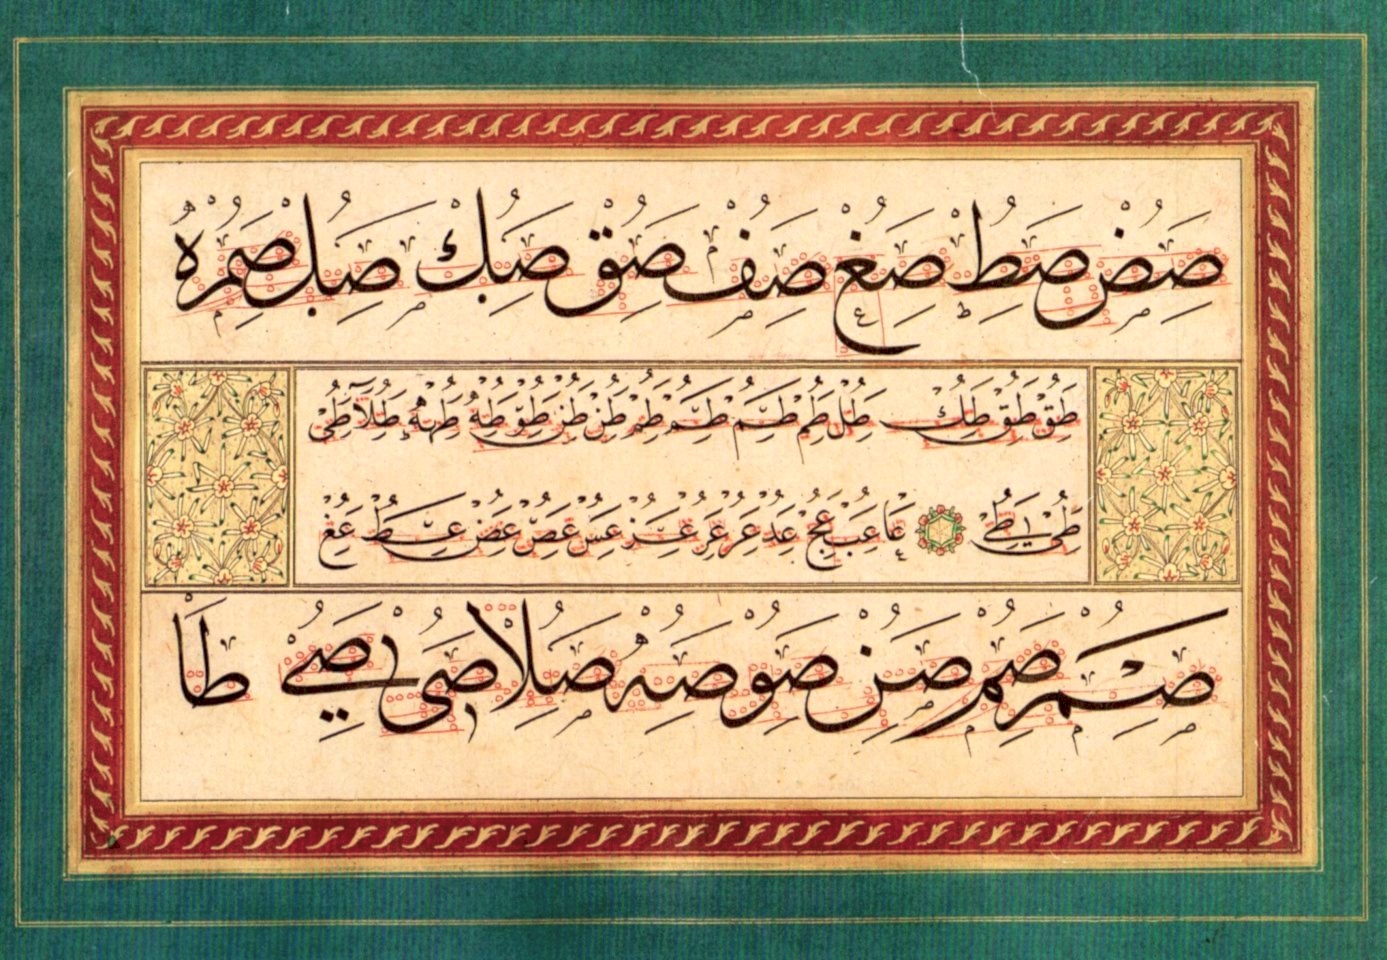 صض صط صغ صف صق صبك صبل صمره
طق طق طك طل طم طم طم طم طن طن طو طه طهه طلا طى
طى طے عا عب عج عد عر عر عز عس عص عض عط عغ
صم صم صن صو صه صلا صى صے طا